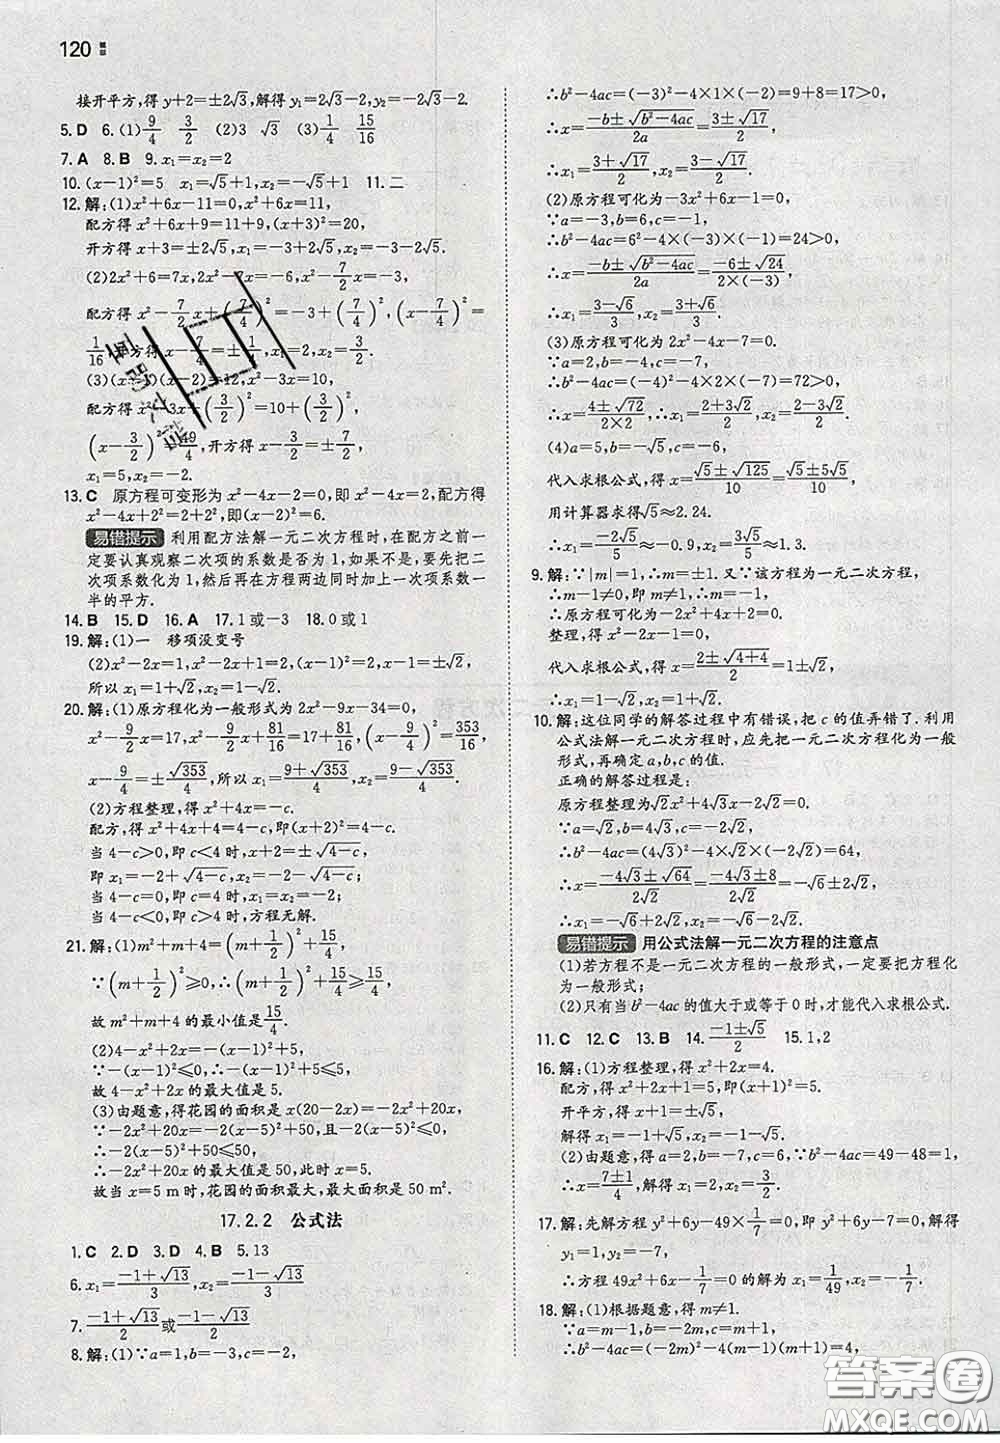 120
接开平方,得 y+2=±2√3,解得 y₁=2√3-2,y₂=-2√3-2.
5. D 6. (1)9/4 3/2 (2)3 √3 (3)1/4 15/16
7. A 8. B 9. x₁=x₂=2
10. (x-1)²=5 x₁=√5+1,x₂=-√5+1 11. 二
12. 解:(1)x²+6x-11=0,x²+6x=11,
配方得 x²+6x+9=11+9,(x+3)²=20,
开方得 x+3=±2√5,x₁=-3+2√5,x₂=-3-2√5.
(2)2x²+6=7x,2x²-7x=-6,x²-7/2x=-3,
配方得 x²-7/2x+(7/4)²=-3+(7/4)²,(x-7/4)²=
1/16,开方得 x-7/4=±1/4,x₁=2,x₂=3/2.
(3)(x+ )(x-2)=12,x²-3x=10,
配方得 x²-3x+(3/2)²=10+(3/2)²,
(x-3/2)²=49/4,开方得 x-3/2=±7/2,
x₁=5,x₂=-2.
13. C 原方程可变形为 x²-4x-2=0,即 x²-4x=2,配方得
x²-4x+2²=2+2²,即(x-2)²=6.
易错提示 利用配方法解一元二次方程时,在配方之前一
定要认真观察二次项的系数是否为 1,如果不是,要先把二
次项系数化为 1,然后再在方程两边同时加上一次项系数一
半的平方.
14. B 15. D 16. A 17. 1 或-3 18. 0 或 1
19. 解:(1)一 移项没变号
(2)x²-2x=1,x²-2x+1=1+1,(x-1)²=2,x-1=±√2,
所以 x₁=1+√2,x₂=1-√2.
20. 解:(1)原方程化为一般形式为 2x²-9x-34=0,
x²-9/2x=17,x²-9/2x+81/16=17+81/16,(x-9/4)²=353/16,
x-9/4=±√353/4,所以 x₁=(9+√353)/4,x₂=(9-√353)/4.
(2)方程整理,得 x²+4x=-c.
配方,得 x²+4x+4=4-c,即(x+2)²=4-c.
当 4-c>0,即 c<4 时,x+2=±√(4-c),
即 x₁=-2+√(4-c),x₂=-2-√(4-c);
当 4-c=0,即 c=4 时,x₁=x₂=-2;
当 4-c<0,即 c>4 时,方程无解.
21. 解:(1)m²+m+4=(m+1/2)²+15/4,
∵(m+1/2)²≥0,∴(m+1/2)²+15/4≥15/4,
故 m²+m+4 的最小值是15/4.
(2)4-x²+2x=-(x-1)²+5,
∵-(x-1)²≤0,∴-(x-1)²+5≤5,
故 4-x²+2x 的最大值是 5.
(3)由题意,得花园的面积是 x(20-2x)=-2x²+20x,
∵-2x²+20x=-2(x-5)²+50,且-2(x-5)²≤0,
∴-2(x-5)²+50≤50,
∴-2x²+20x 的最大值是 50,此时 x=5,
故当 x=5 m 时,花园的面积最大,最大面积是 50 m².
17.2.2 公式法
1. C 2. D 3. D 4. B 5. 13
6. x₁=(-1+√13)/3,x₂=(-1-√13)/3
7. (-1+√13)/2或(-1-√13)/2
8. 解:(1)∵a=1,b=-3,c=-2,
∴b²-4ac=(-3)²-4×1×(-2)=9+8=17>0,
∴x=(-b±√(b²-4ac))/2a=(3±√17)/2,
∴x₁=(3+√17)/2,x₂=(3-√17)/2.
(2)原方程可化为-3x²+6x-1=0,
∵a=-3,b=6,c=-1,
∴b²-4ac=6²-4×(-3)×(-1)=24>0,
∴x=(-b±√(b²-4ac))/2a=(-6±√24)/(2×(-3)),
∴x₁=(3-√6)/3,x₂=(3+√6)/3.
(3)原方程可化为 2x²-4x-7=0.
∵a=2,b=-4,c=-7,
∴b²-4ac=(-4)²-4×2×(-7)=72>0,
∴x=(4±√72)/(2×2),∴x₁=(2+3√2)/2,x₂=(2-3√2)/2.
(4)a=5,b=-√5,c=-6,
代入求根公式,得 x=(√5±√125)/10=(√5±5√5)/10,
用计算器求得√5≈2.24.
∴x₁=-2√5/5≈-0.9,x₂=3√5/5≈1.3.
9. 解:∵|m|=1,∴m=±1.又∵该方程为一元二次方程,
∴m-1≠0,即 m≠1,∴m=-1,
∴原方程可化为-2x²+4x+2=0.
整理,得 x²-2x-1=0.
代入求根公式,得 x=(2±√(4+4))/2=1±√2,
∴x₁=1-√2,x₂=1+√2.
10. 解:这位同学的解答过程中有错误,把 c 的值弄错了.利用
公式法解一元二次方程时,应先把一元二次方程化为一般
形式,再确定 a,b,c 的值.
正确的解答过程是:
原方程整理为√2x²+4√3x-2√2=0.
∵a=√2,b=4√3,c=-2√2,
∴b²-4ac=(4√3)²-4×√2×(-2√2)=64,
∴x=(-4√3±√64)/2√2=(-4√3±8)/2√2=-√6±2√2,
∴x₁=-√6+2√2,x₂=-√6-2√2.
易错提示 用公式法解一元二次方程的注意点
(1)若方程不是一元二次方程的一般形式,一定要把方程化
为一般形式;
(2)只有当 b²-4ac 的值大于或等于 0 时,才能代入求根公式.
11. C 12. C 13. B 14. (-1±√5)/2 15. 1,2
16. 解:(1)方程整理,得 x²+2x=4.
配方,得 x²+2x+1=5,即(x+1)²=5.
开平方,得 x+1=±√5,
解得 x₁=-1+√5,x₂=-1-√5.
(2)由题意,得 a=2,b=-7,c=6,∴b²-4ac=49-48=1,
∴x=(7±1)/4,解得 x₁=2,x₂=3/2.
17. 解:先解方程 y²+6y-49×1/7=0,即 y²+6y-7=0,解得
y₁=1,y₂=-7,
∴方程 49x²+6x-1/7=0 的解为 x₁=1/49,x₂=-1/7.
18. 解:(1)根据题意,得 m≠1.
∵a=m-1,b=-2m,c=m+1,
∴b²-4ac=(-2m)²-4(m-1)(m+1)=4,
答案圈
MXQE.COM